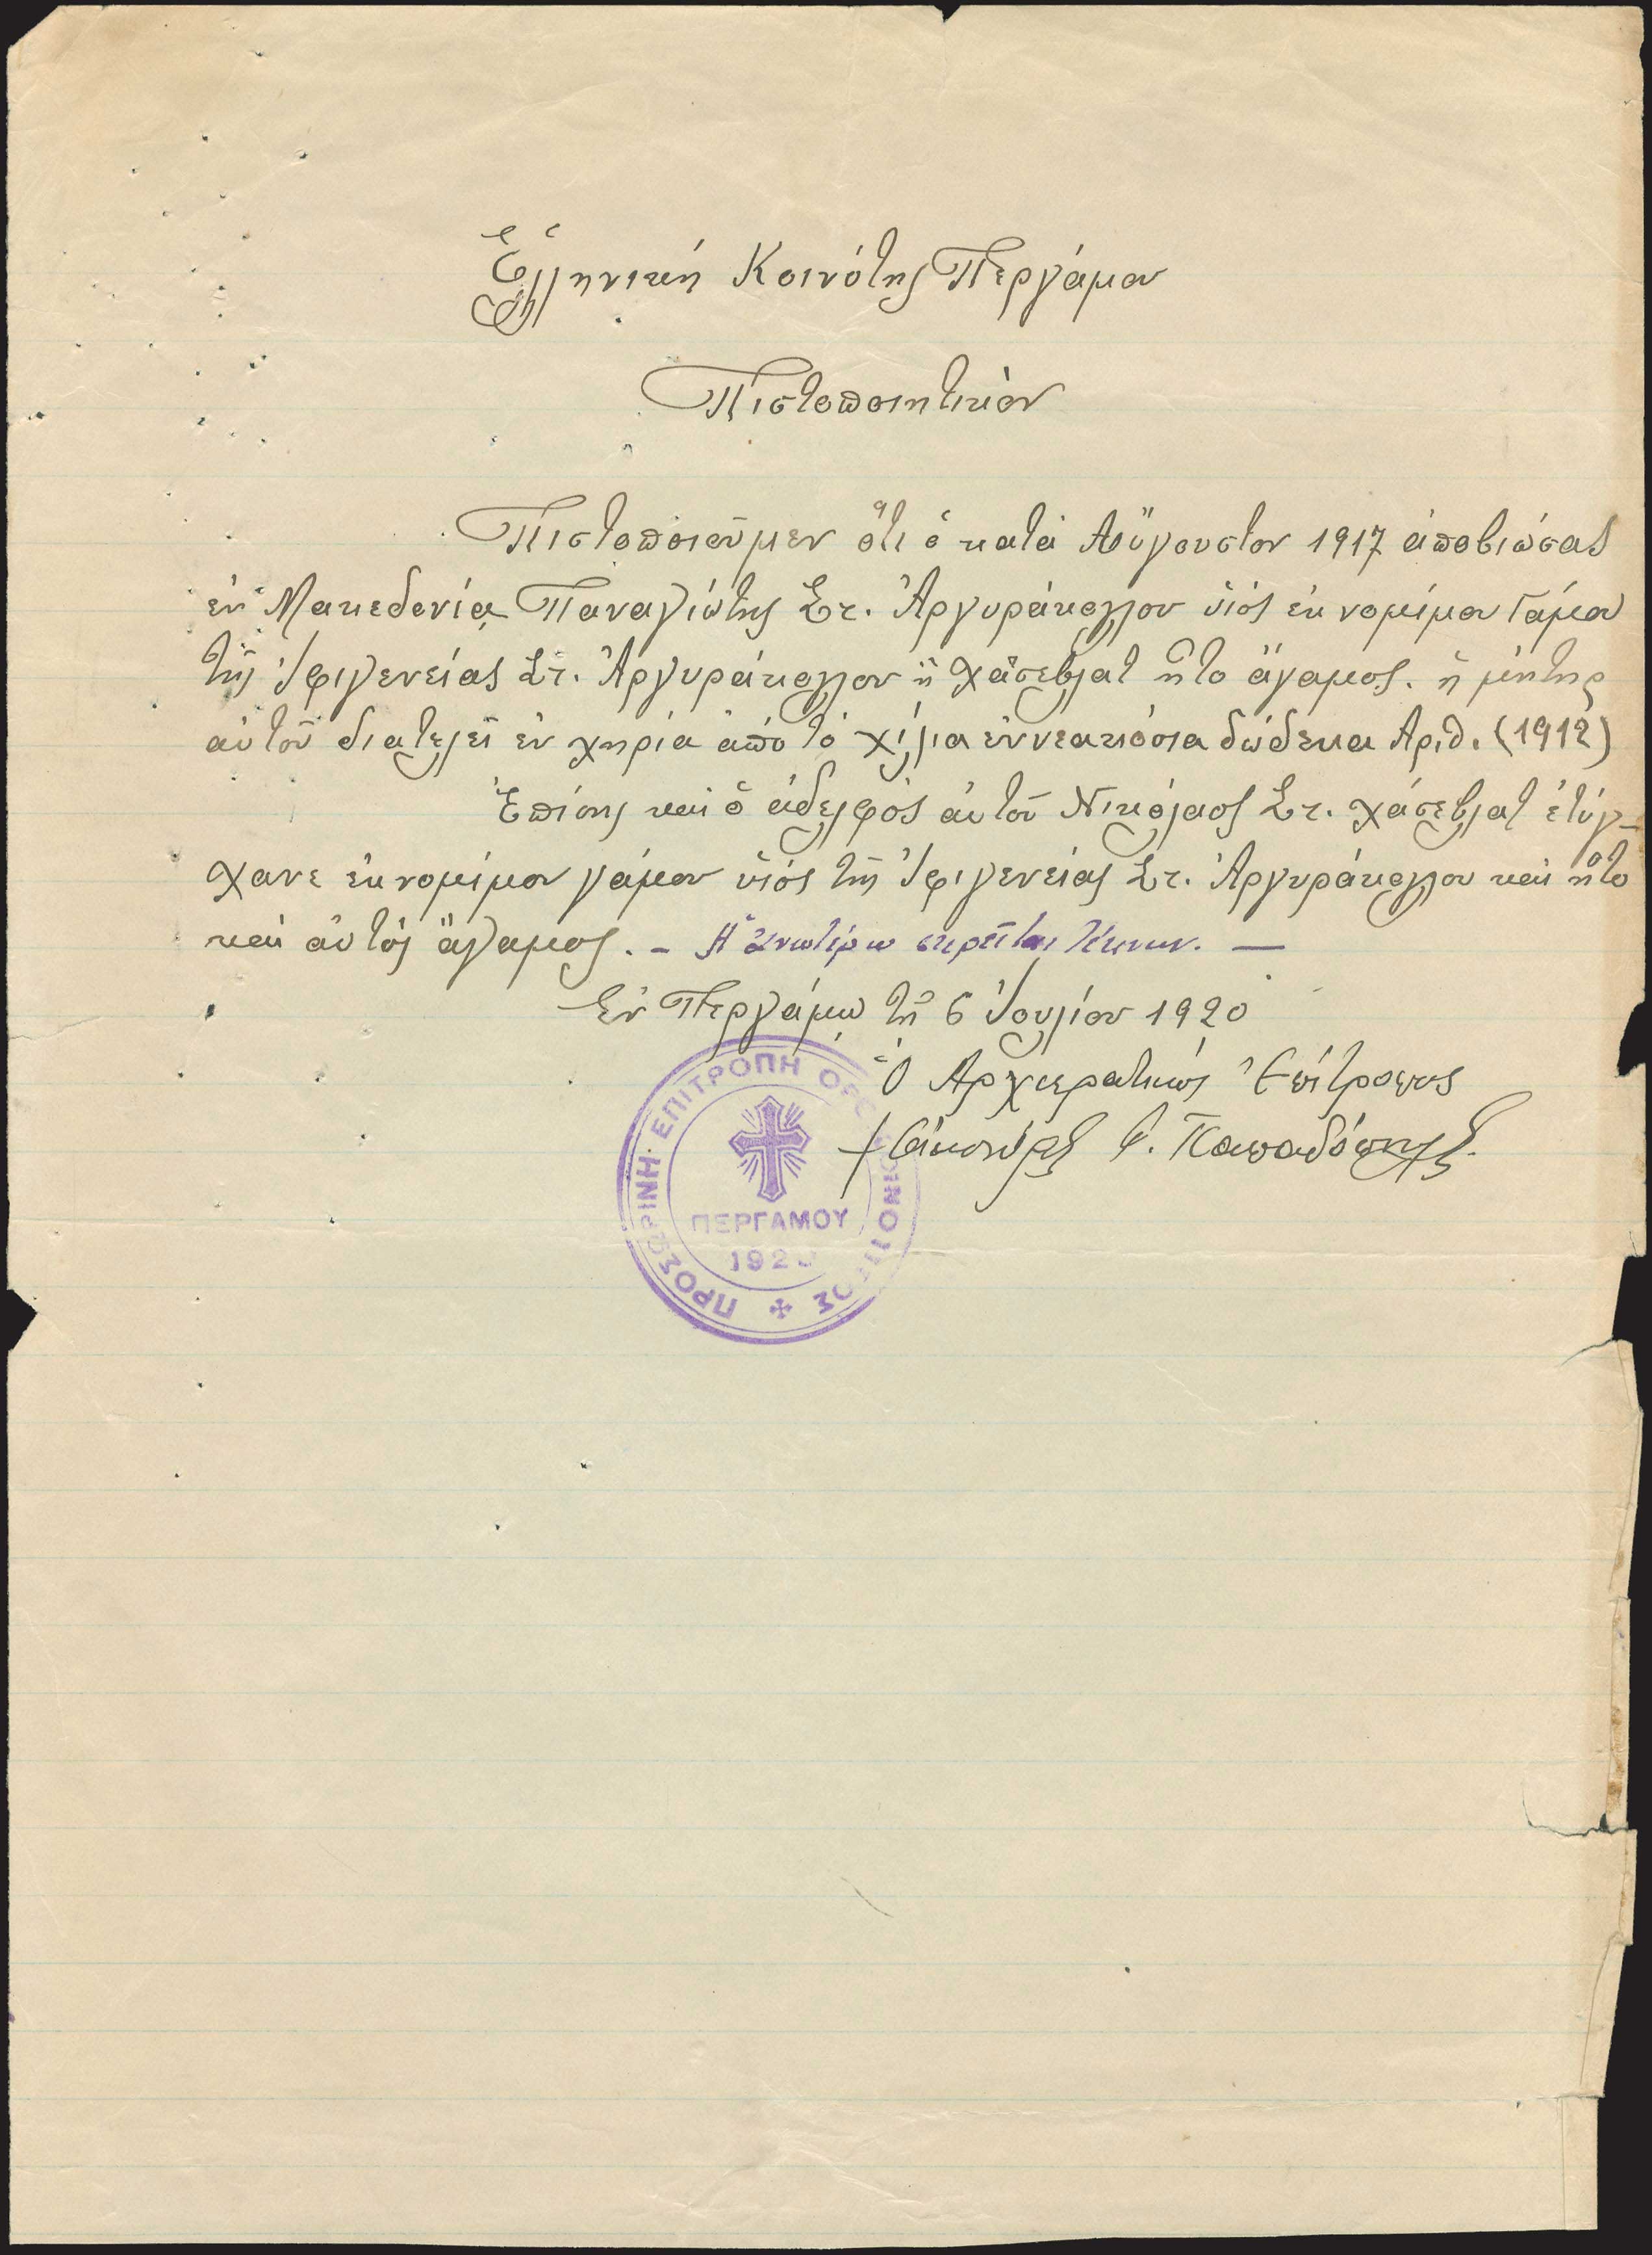 Ἑλληνική Κοινότης Περγάμου
Πιστοποιητικὸν
Πιστοποιοῦμεν ὅτι ὁ κατὰ Αὔγουστον 1917 ἀποβιώσας
ἐν Μακεδονίᾳ Παναγιώτης Στ. Ἀργυράκογλου υἱός ἐκ νομίμου Γάμου
τῆς Ἰφιγενείας Στ. Ἀργυράκογλου ἢ Χάσεβλατ ἦτο ἄγαμος. ἡ μήτηρ
αὐτοῦ διατελεῖ ἐν χηρίᾳ ἀπὸ τὸ χίλια ἐννεακόσια δώδεκα Αριθ. (1912)
Ἐπίσης καὶ ὁ ἀδελφὸς αὐτοῦ Νικόλαος Στ. Χάσεβλατ ἐτύγ-
χανε ἐκ νομίμου γάμου υἱός τῆς Ἰφιγενείας Στ. Ἀργυράκογλου καὶ ἦτο
καὶ αὐτὸς ἄγαμος. – Ἡ ἀνωτέρω στερεῖται τέκνων. —
Ἐν Περγάμῳ τῇ 6 Ἰουλίου 1920
Ὁ Ἀρχιερατικὸς Ἐπίτροπος
Παπαδόπουλος
ΠΡΟΣΩΡΙΝΗ ΕΠΙΤΡΟΠΗ
ΠΕΡΓΑΜΟΥ
192